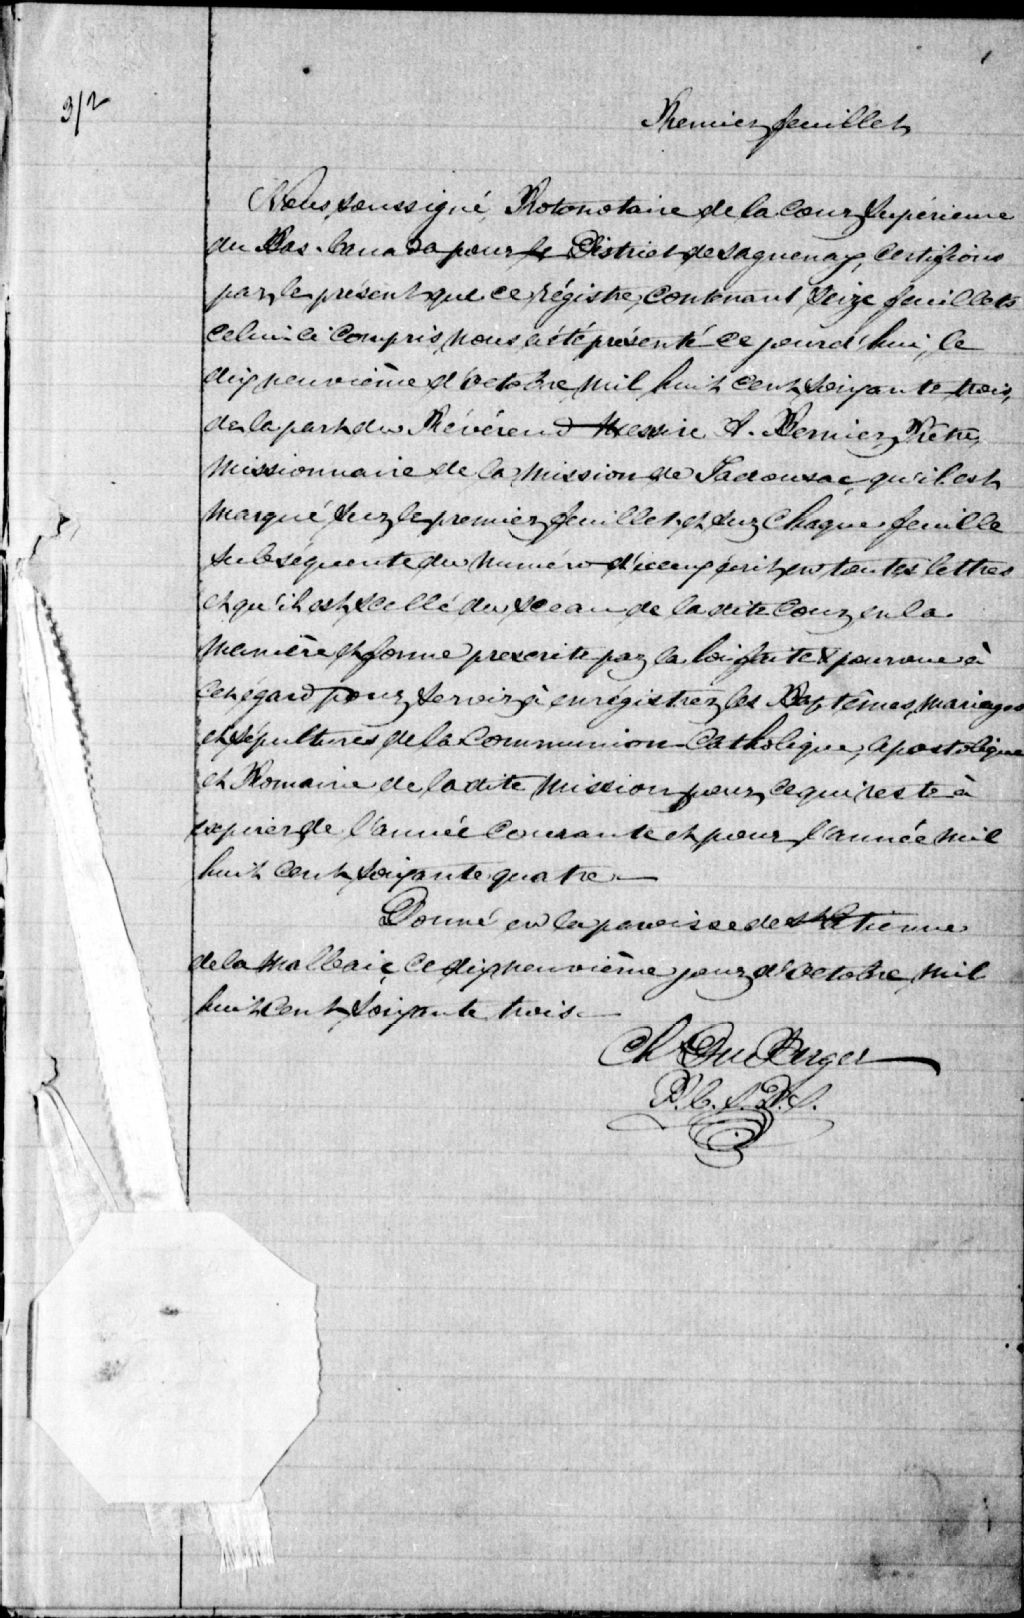 3/2
1
Premier feuillet
Nous soussigné, Protonotaire de la Cour Supérieure
du Bas-Canada pour le District de Saguenay, Certifions
par le présent que ce régistre, contenant Seize feuillets
celui ci compris, nous a été présenté ce jourd'hui, le
dixneuvième d'octobre mil huit cent soixante trois,
de la part du Révérend Messire A. Bernier, Prêtre,
Missionnaire de la Mission de Tadousac, qu'il est
marqué sur le premier feuillet et sur chaque feuille
subsequente du numéro d'iceux écrit en toutes lettres
et qu'il est scellé du sceau de la dite Cour en la
manière et forme prescrite par la loi faite & pourvue à
cet égard pour servir à enrégistrer les Baptêmes, mariages
et sépultures de la Communion Catholique, Apostolique
et Romaine de la dite Mission pour ce qui reste à
expirer de l'année courante et pour l'année mil
huit cent soixante quatre.—
Donné en la paroisse de St Etienne
de la Malbaie, ce dixneuvième jour d'octobre mil
huit cent soixante trois.—
Ch Du Berger
P. C. S. D. S.